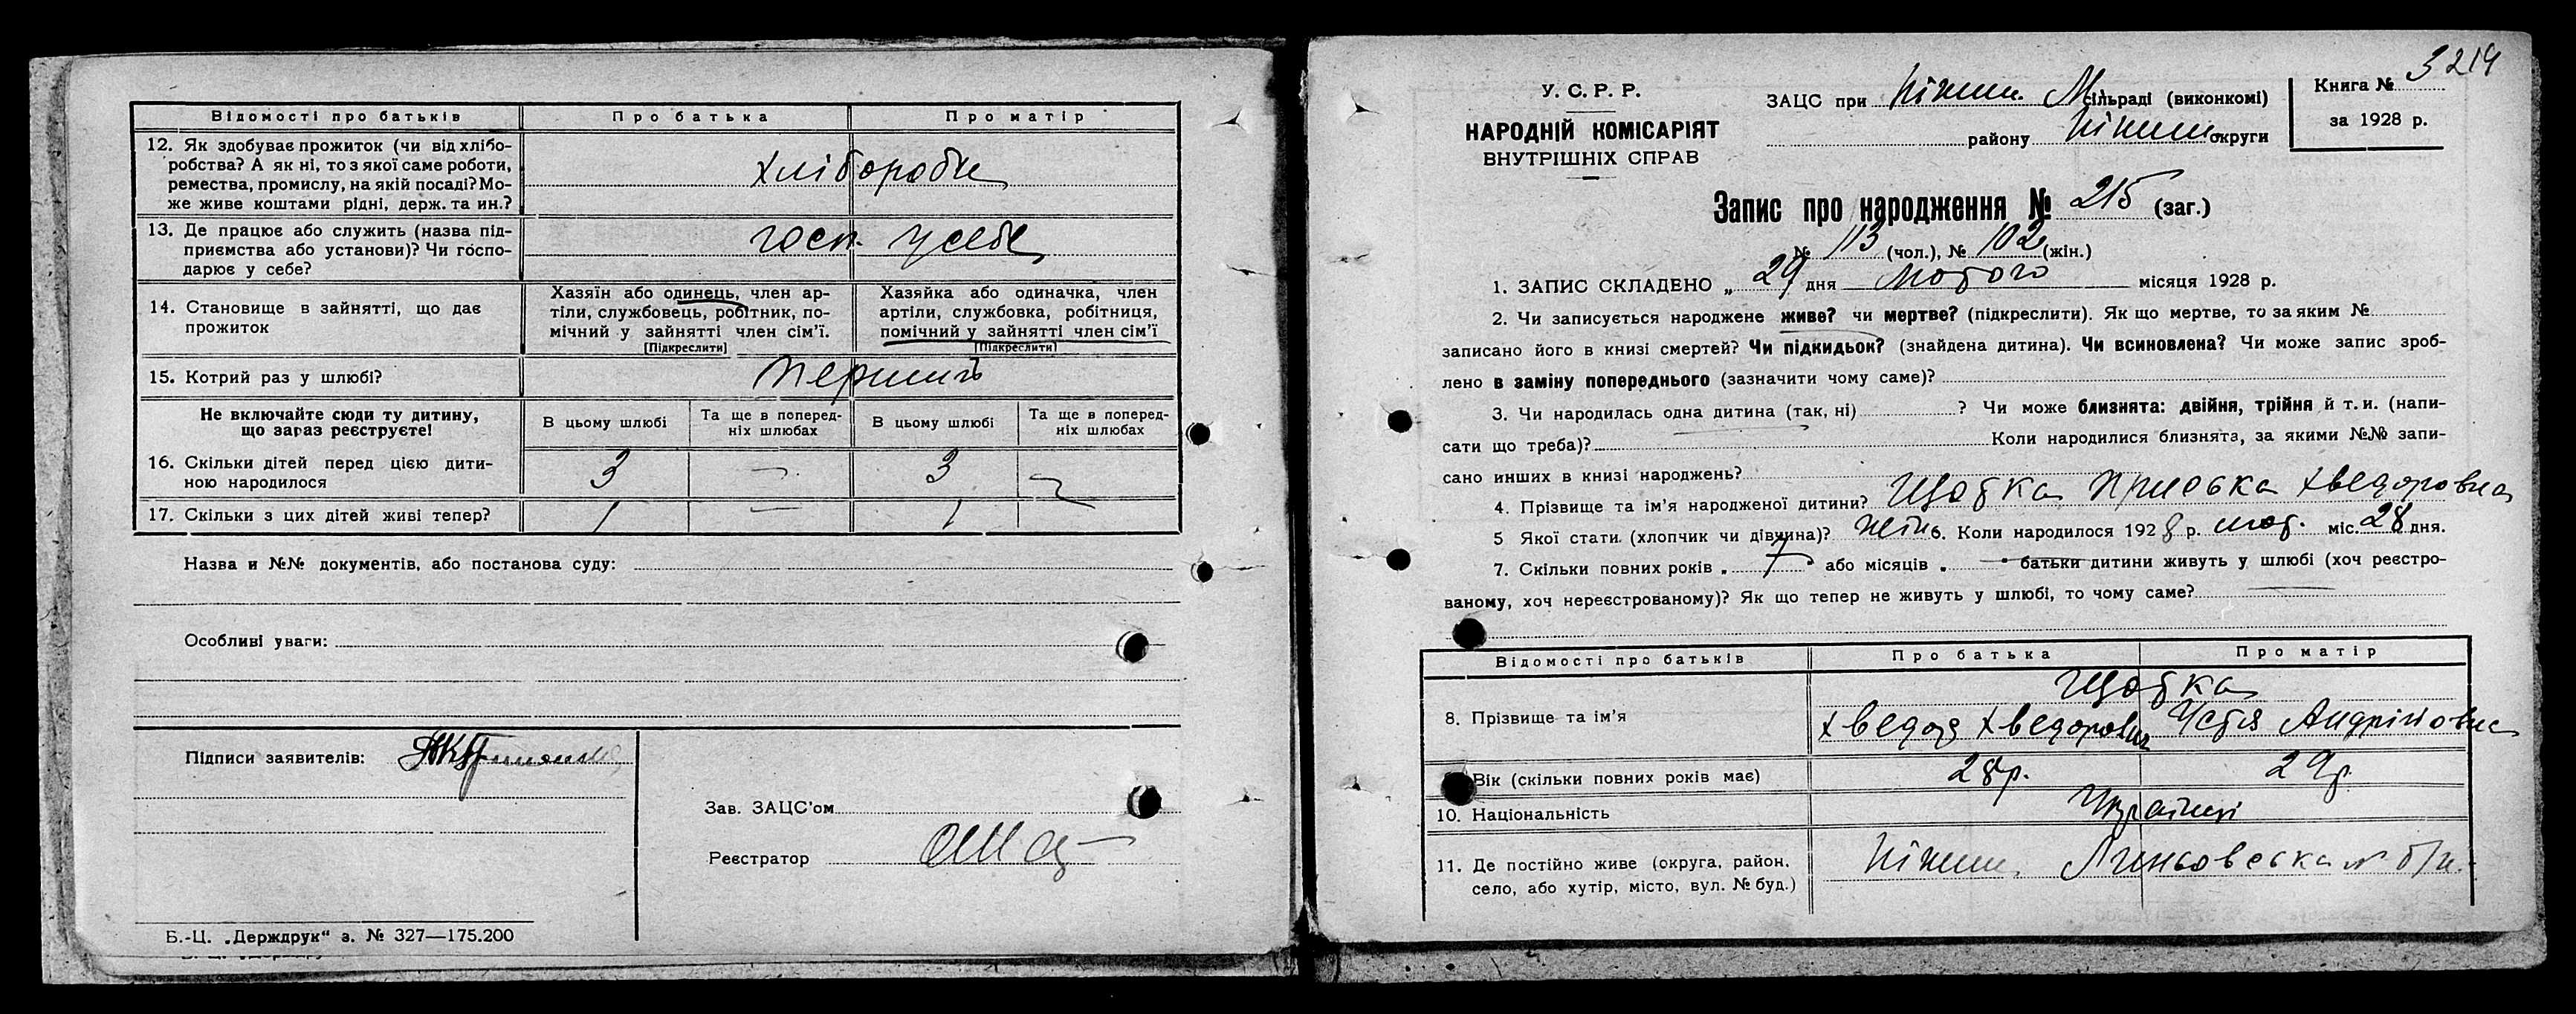 Відомості про батьків Про батька Про матір
12. Як здобуває прожиток (чи від хлібо-
робства? А як ні, то з якої саме роботи,
ремества, промислу, на якій посаді? Мо-
же живе коштами рідні, держ. та ин.?
хлібороби
13. Де працює або служить (назва під-
приємства або установи)? Чи госпо-
дарює у себе?
госп. у себе
14. Становище в зайнятті, що дає
прожиток
Хазяїн або одинець, член ар-
тіли, службовець, робітник, по-
мічний у зайнятті член сім'ї.
[Підкреслити]
Хазяйка або одиначка, член
артіли, службовка, робітниця,
помічний у зайнятті член сім'ї
[Підкреслити]
15. Котрий раз у шлюбі?
Не включайте сюди ту дитину,
що зараз реєструєте!
В цьому шлюбі
Та ще в поперед-
ніх шлюбах
В цьому шлюбі
Та ще в поперед-
ніх шлюбах
16. Скільки дітей перед цією дити-
ною народилося
3 — 3 —
17. Скільки з цих дітей живі тепер? 1 — 1
Назва и №№ документів, або постанова суду:
Особливі уваги:
Підписи заявителів:
Зав. ЗАЦС'ом
Реєстратор
Б.-Ц. „Держдрук" з. № 327—175.200
У. С. Р. Р.
НАРОДНІЙ КОМІСАРІЯТ
ВНУТРІШНІХ СПРАВ
ЗАЦС при Ніжин. М. сільраді (виконкомі)
району Ніжин. округи
Книга № 3 214
за 1928 р.
Запис про народження № 215 (заг.)
№ 113 (чол.), № 102 (жін.)
1. ЗАПИС СКЛАДЕНО „ 29 дня Лютого місяця 1928 р.
2. Чи записується народжене живе? чи мертве? (підкреслити). Як що мертве, то за яким №
записано його в книзі смертей? Чи підкидьок? (знайдена дитина). Чи всиновлена? Чи може запис зроб-
лено в заміну попереднього (зазначити чому саме)?
3. Чи народилась одна дитина (так, ні) ? Чи може близнята: двійня, трійня й т. и. (напи-
сати що треба)? Коли народилися близнята, за якими №№ запи-
сано инших в книзі народжень?
4. Прізвище та ім'я народженої дитини? Щотка Приська Хведоровна
5 Якої стати (хлопчик чи дівчина)? жін 6. Коли народилося 1928 р. лют. міс. 28 дня.
7. Скільки повних років „ 7 " або місяців „ — " батьки дитини живуть у шлюбі (хоч реєстро-
ваному, хоч нереєстрованому)? Як що тепер не живуть у шлюбі, то чому саме?
Відомості про батьків Про батька Про матір
Щотка
8. Прізвище та ім'я Хведор Хведорович Устя Андріїовна
Вік (скільки повних років має) 28 р. 29 р.
10. Національність Українці
11. Де постійно живе (округа, район,
село, або хутір, місто, вул. № буд.)
Ніжин.